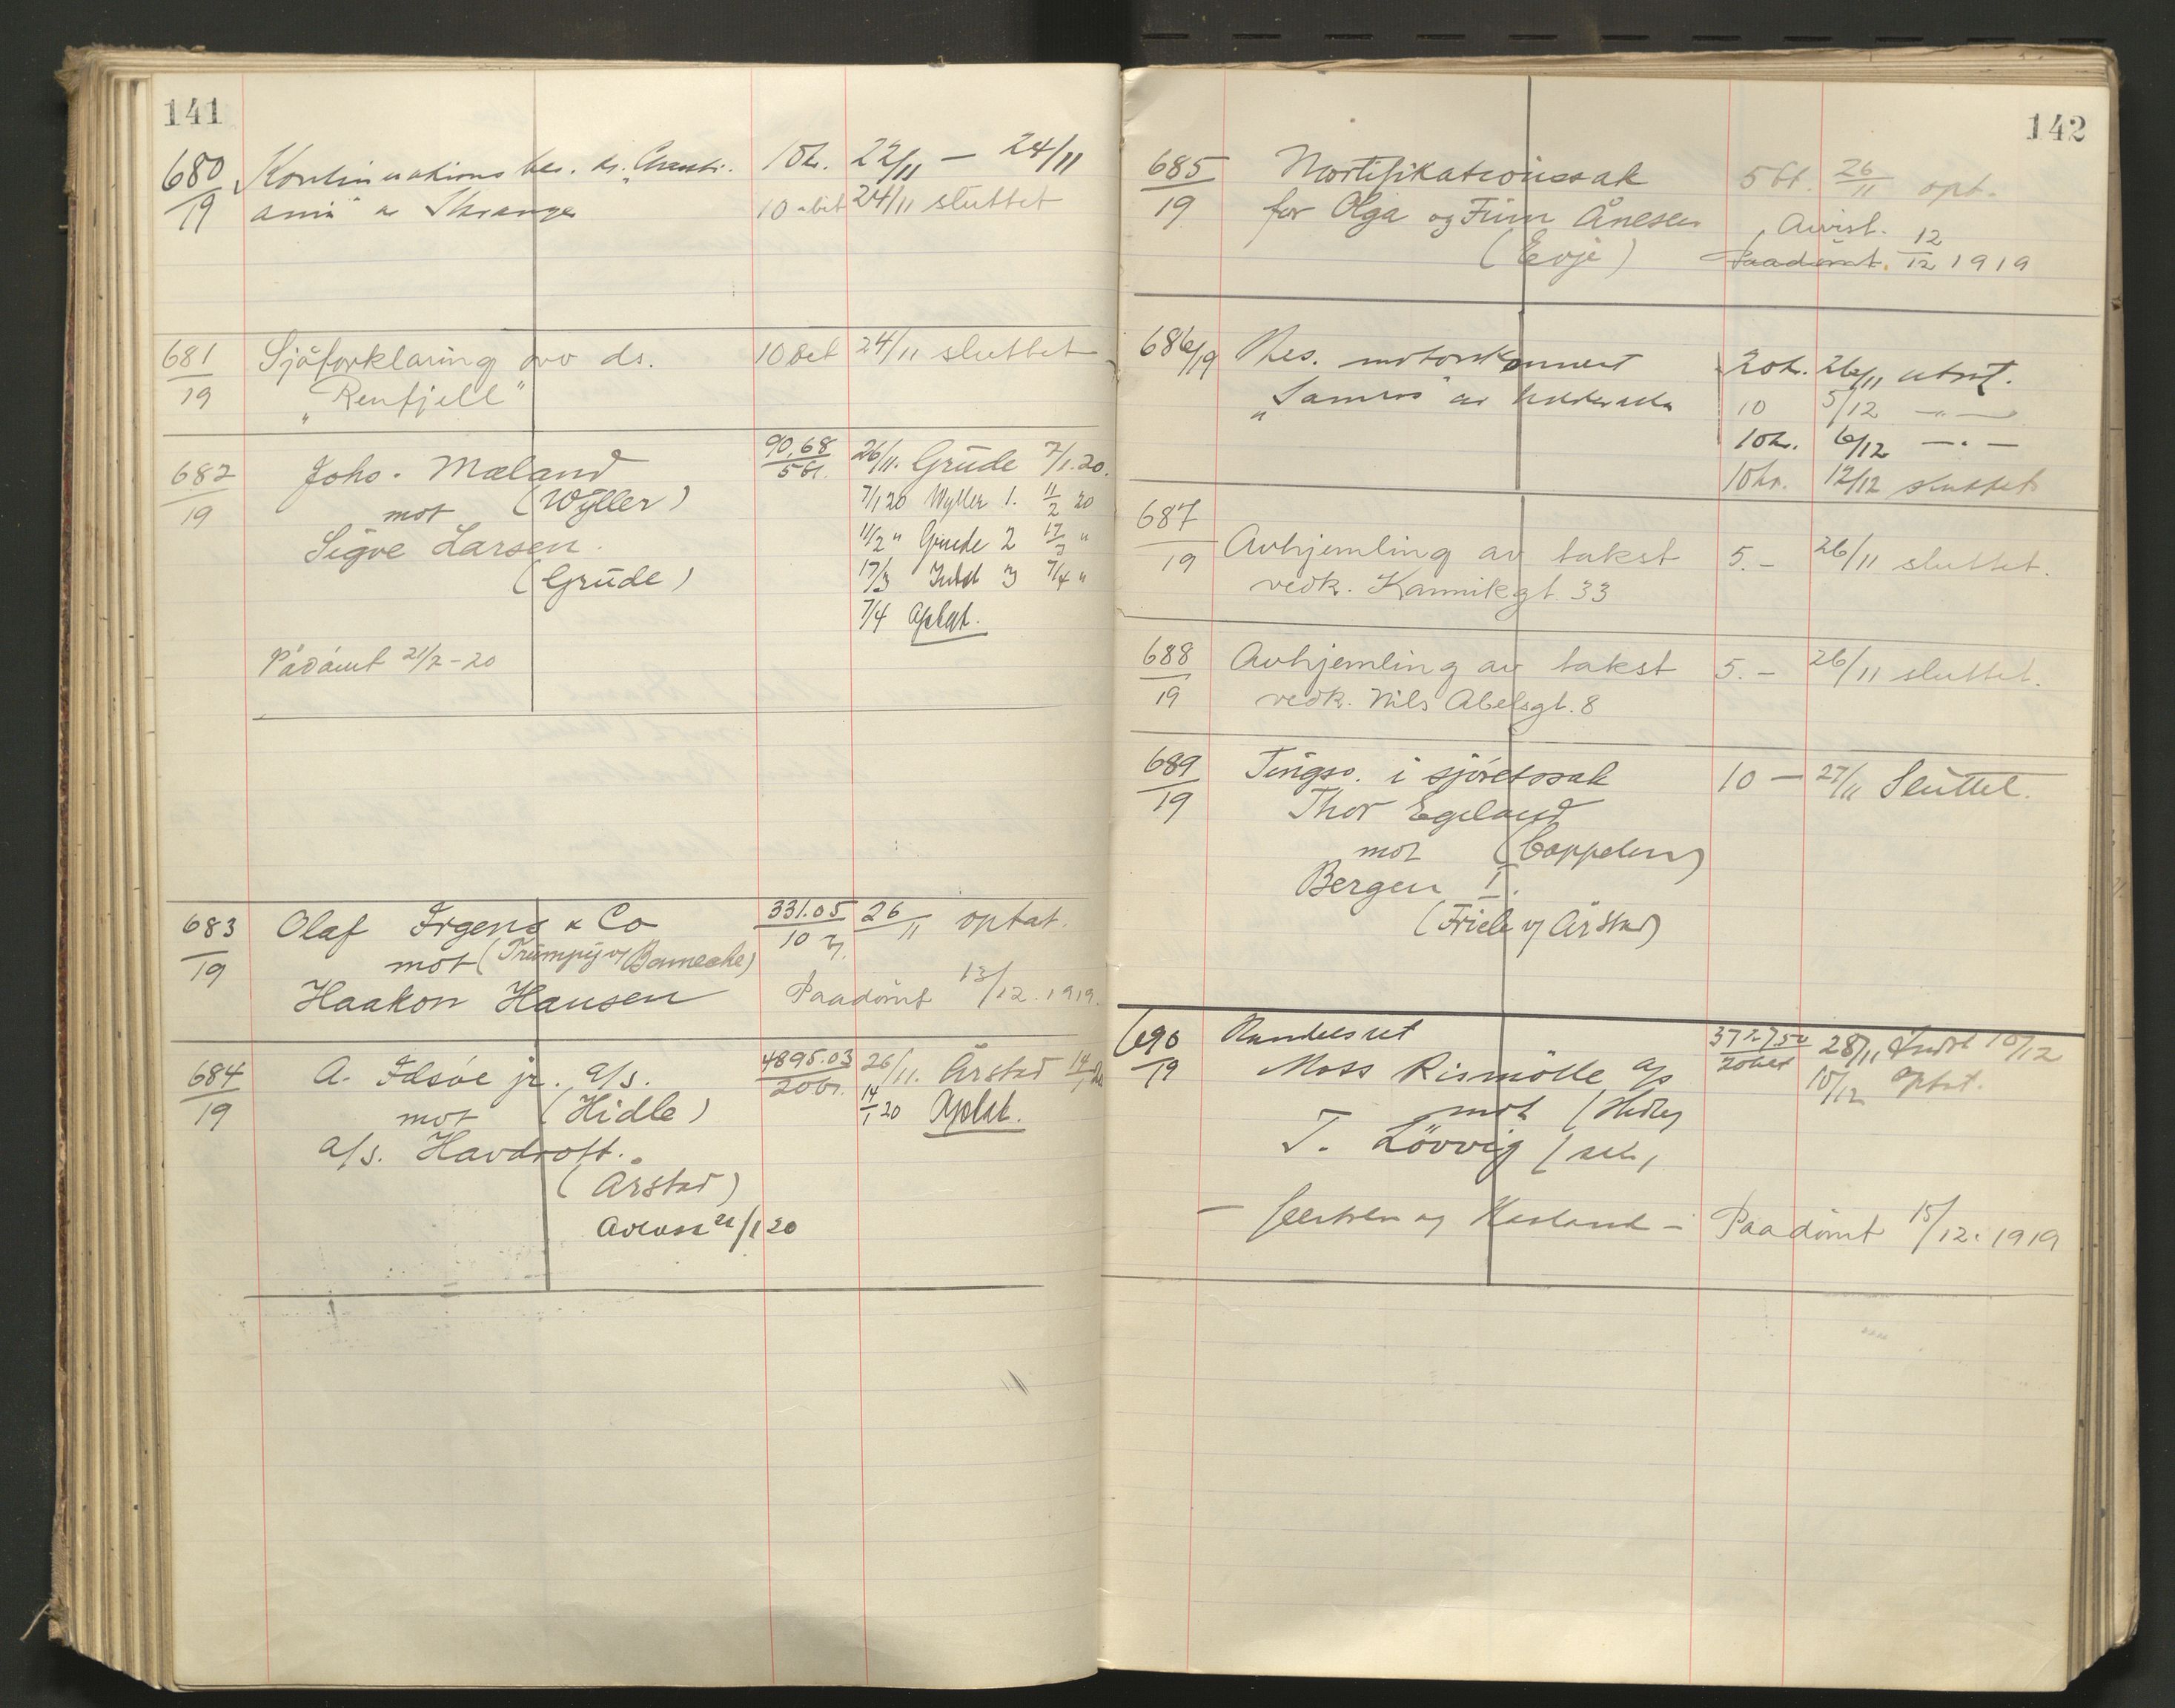 141
680/19 Kontinuationsbes. ds. "Christi-
ania" av Stavanger
22/11 — 24/11
24/11 sluttet
681/19 Sjöforklaring ovo ds.
"Renfjell"
10 bet 24/11 sluttet
682/19 Johs. Mæland
mot (Wyller)
Sigve Larsen.
(Grude)
90,68
26/11. Grude 7/1.20.
7/1 20 Wyller 1. 11/2 20
11/2 " Grude 2 17/3 "
17/3 3 7/4 "
7/4
Pådömt 21/2-20
683/19 Olaf Irgens & Co
mot (Trumpy v/ Bennecke)
Haakon Hansen
331.05/10
26/11 optat.
Paadömt 13/12.1919.
684/19 A. Idsöe jr. a/s.
mot (Hidle)
a/s. Havdrott.
(Årstad)
4895.03
26/11. Årstad 14/1
14/1 20 Optat.
20
142
685/19 Mortifikationssak
for Olga og Finn Ånesen
(Evje)
26/11 opt.
Avvist. 12
Paadömt. 12 1919
686/19 Bes. motorskonnert
20 kr. 26/11 utsat.
10 5/12 — " —
10 kr. 6/12 — " —
10 kr. 12/12 sluttet
687/19 Avhjemling av takst
vedk. Kannikgt. 33
5.- 26/11 sluttet.
688/19 Avhjemling av takst
vedk. Nils Abelsgt. 8
5.- 26/11 sluttet.
689/19 Tingsv. i sjöretssak
Thor Egeland
mot (Cappelen)
Bergen I.
(Friele v/ Årstad)
10 — 27/11 Sluttet.
690/19 Handelsret
Moss Rismölle a/s
mot (Hidle)
T. Lövvig (selv)
3727,50
28/11 10/12
10/12 optat.
Paadömt 15/12.1919